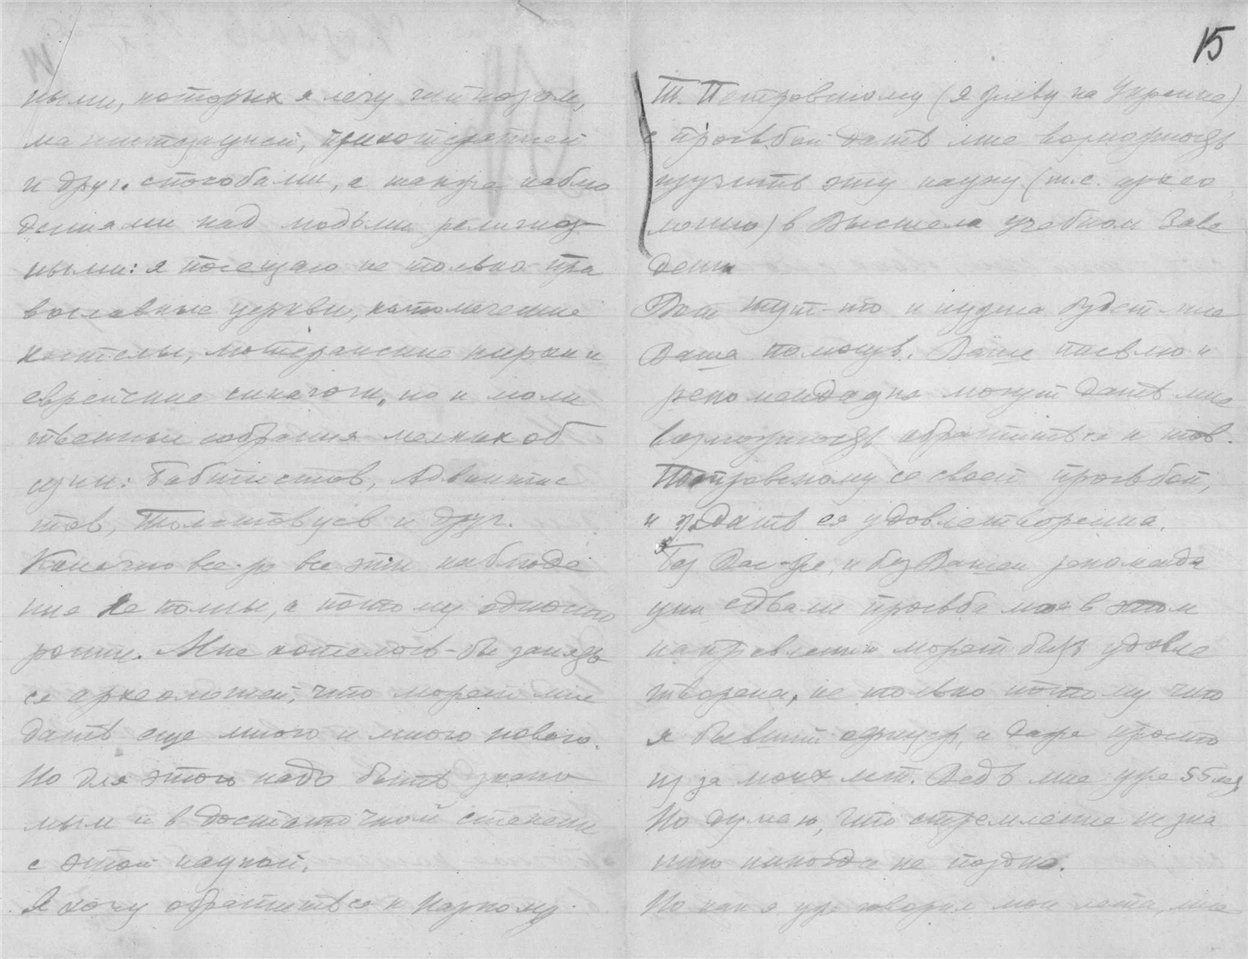 ными, которых я лечу гипнозом,
магнитизацией, психотерапией
и друг. способами, а также наблю
дениями над людьми религиоз-
ными: я посещаю не только пра
вославные церкви, католические
костелы, лютеранские кирки и
еврейские синагоги, но и моли
твенные собрания мелких об
щин: Бабтистов, Адвентис
тов, Толстовцев и друг.
Конечно все-же все эти наблюде
ния не полны, а потому односто
ронни. Мне хотелось-бы занять
ся археологией, что может мне
дать еще много и много нового.
Но для этого надо быть знако
мым и в достаточной степени
с этой наукой.
Я хочу обратиться к Наркому
15
Т. Петровскому (я живу на Украине)
с прозьбой дать мне возможность
изучить эту науку (т.е. архео
логию) в Высшем учебном Заве
дении
Вот тут-то и нужна будет мне
Ваша помощь. Ваше письмо и
рекомендация могут дать мне
возможность обратиться к тов.
Петровскому со своей прозьбой,
и ждать ея удовлетворения.
Без Вас-же, и без Вашей рекоменда
ции едва ли прозьба моя в этом
направлении может быть удовле
творена, не только потому что
я бывший офицер, и даже просто
из за моих лет. Ведь мне уже 55 лет
Но думаю, что стремление к зна
нию никогда не поздно.
Но как я уже говорил мои лета, мое